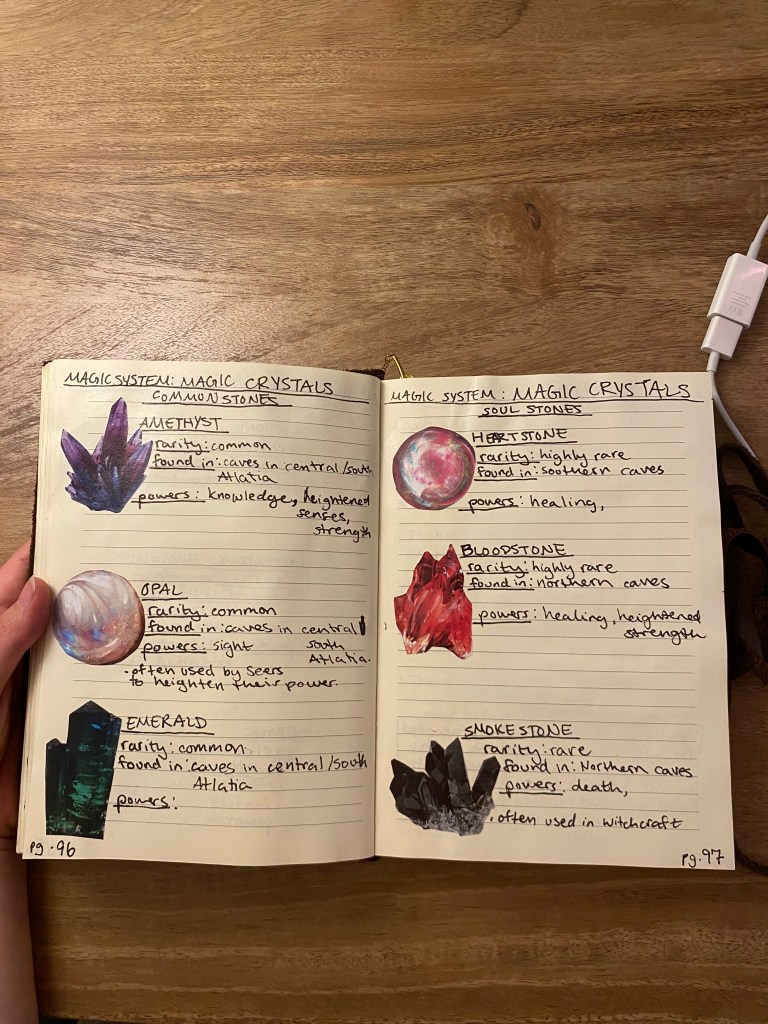 MAGIC SYSTEM: MAGIC CRYSTALS
COMMON STONES
AMETHYST
rarity: common
found in: caves in central/south
Atlatia
powers: knowledge, heightened
senses,
strength
OPAL
rarity: common
found in: caves in central/
south
powers: sight
Atlatia.
· often used by Seers
to heighten their power.
EMERALD
rarity: common
found in: caves in central/south
Atlatia
powers:
pg. 96
MAGIC SYSTEM: MAGIC CRYSTALS
SOUL STONES
HEARTSTONE
rarity: highly rare
found in: southern caves
powers: healing,
BLOODSTONE
rarity: highly rare
found in: northern caves
powers: healing, heightened
strength
SMOKESTONE
rarity: rare
found in: Northern caves
powers: death,
· often used in witchcraft
pg. 97